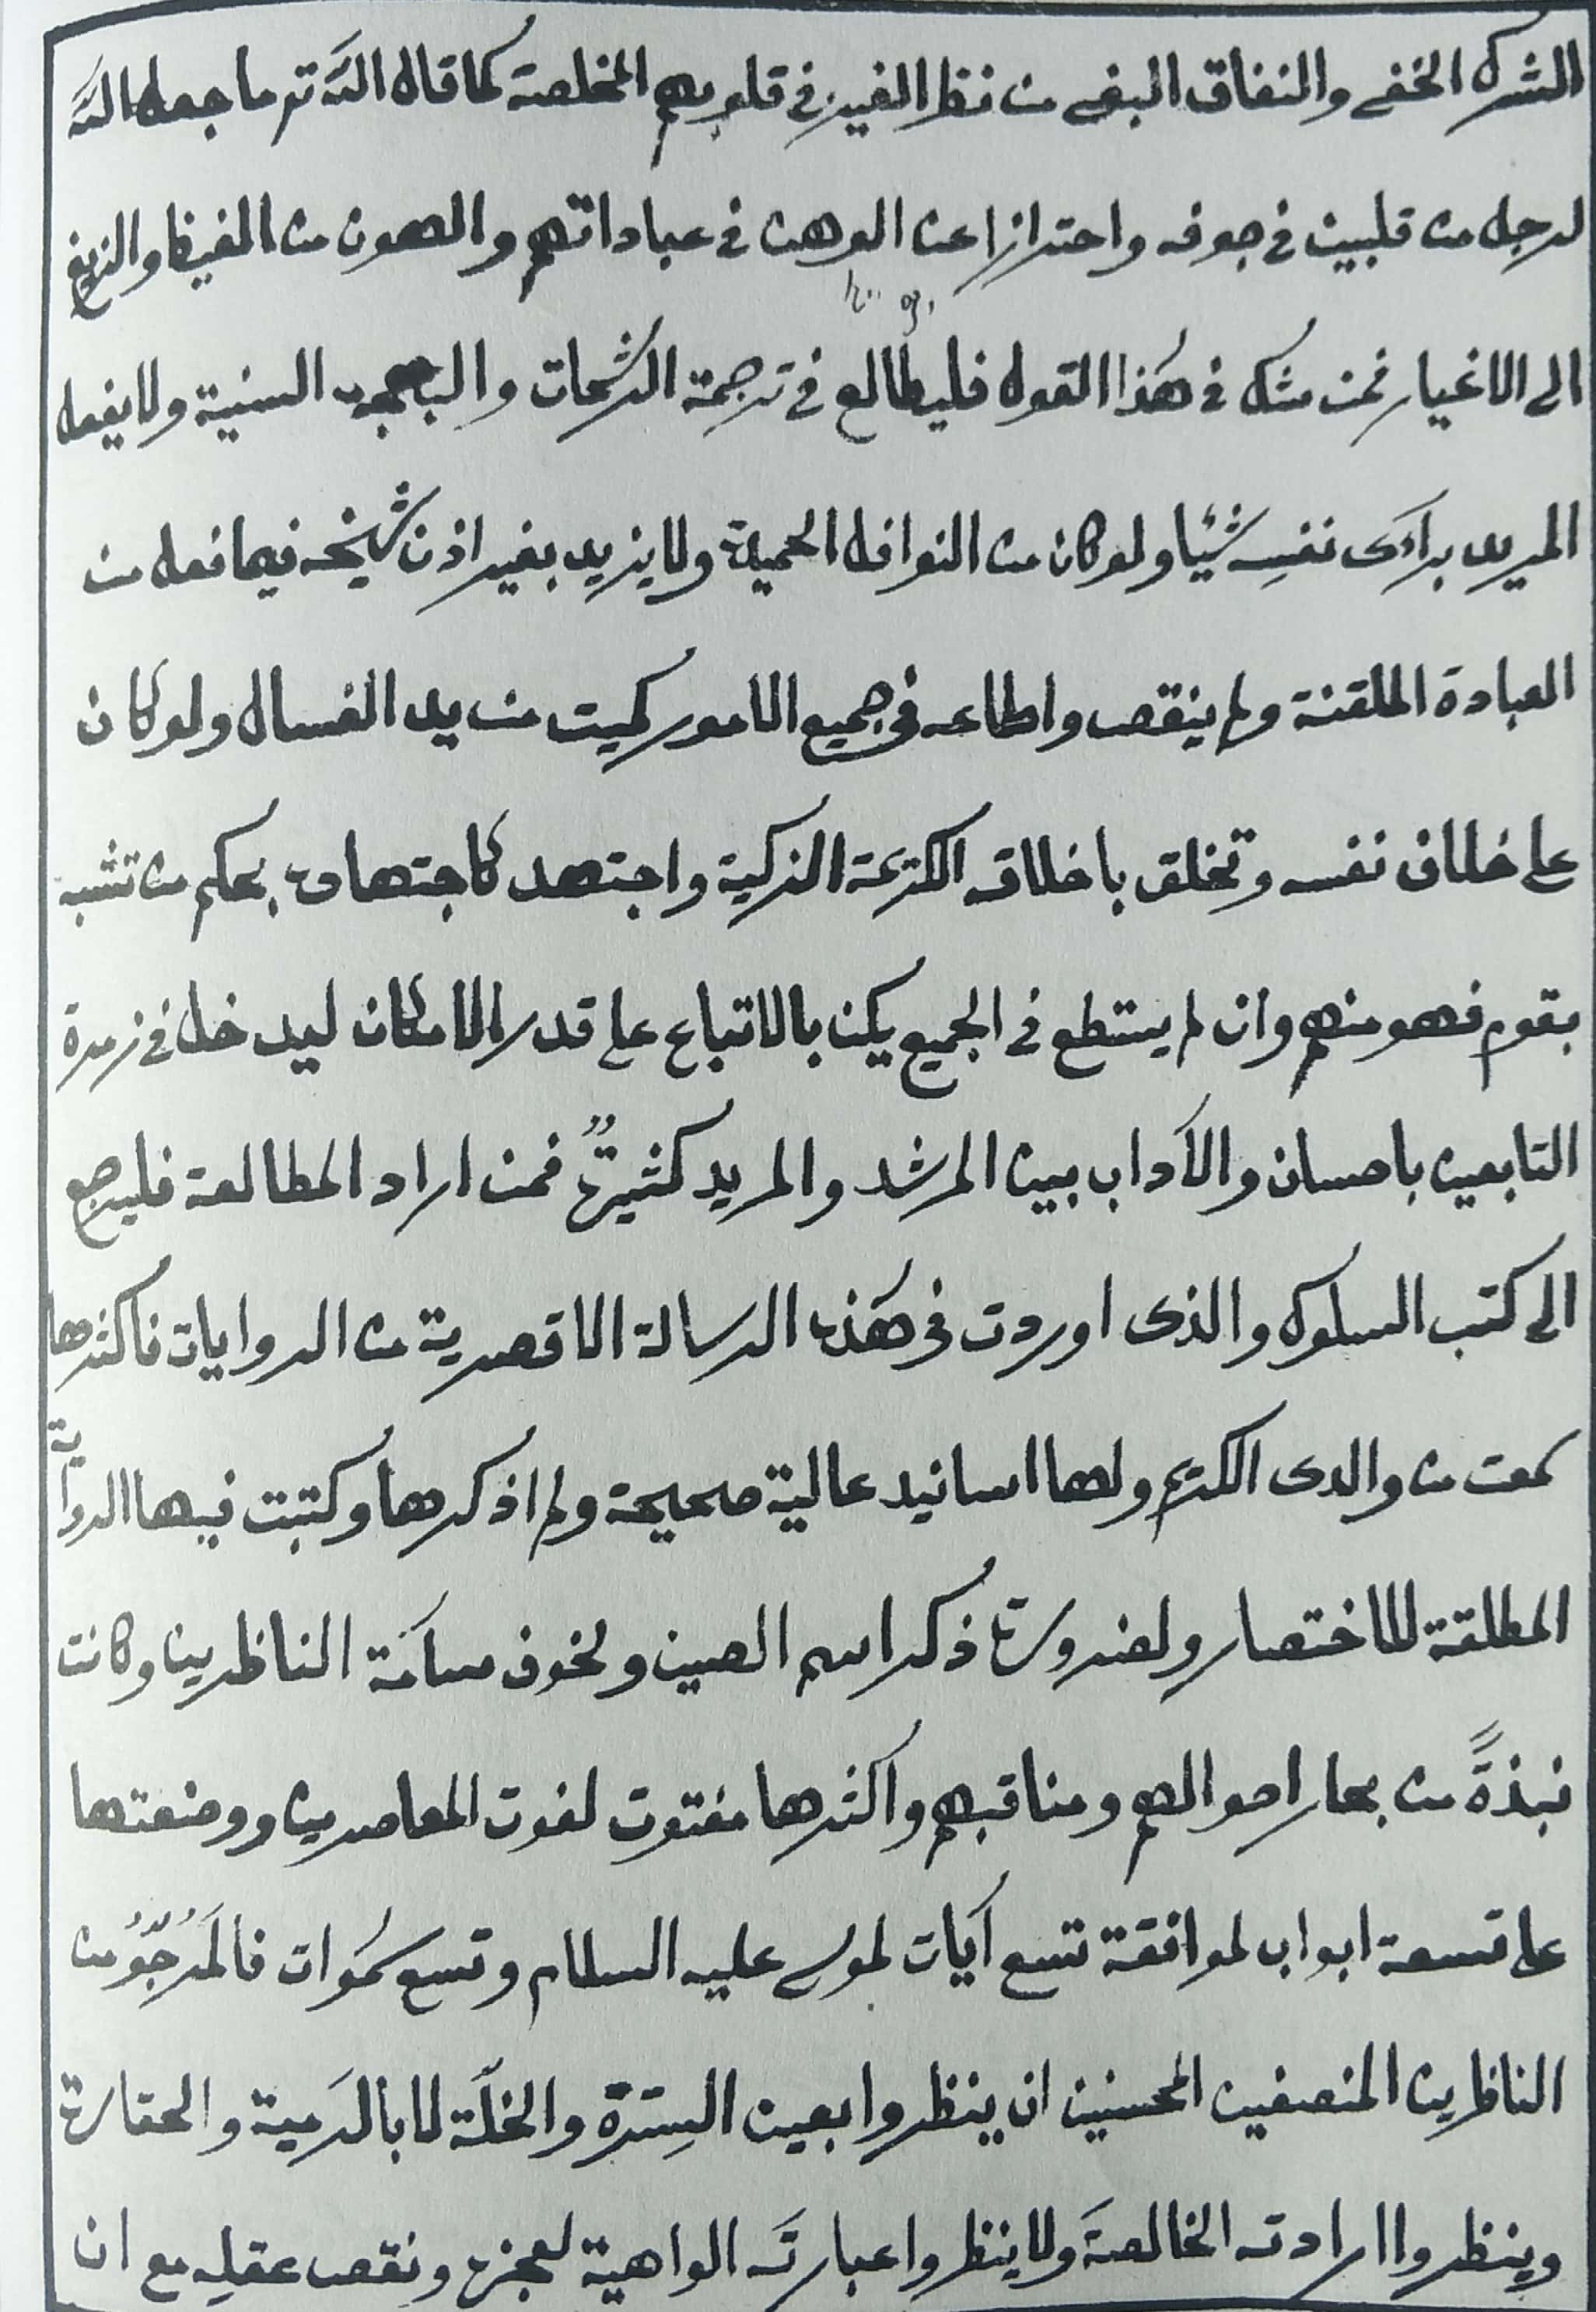 الشرك الخفى والنفاق البغى من نظر الغير فى قلوبهم المخلصة كما قال الله تع ما جعل الله
لرجل من قلبين فى جوفه واحترازا عن الوهن فى عباداتهم والصون من الغيظ والزيغ
الى الاغيار فمن شك فى هذا القول فليطالع فى ترجمة الرشحات والبهجة السنية ولا يفعل
المريد براءى نفسه شيئا ولو كان من النوافل الحميدة ولا يزيد بغير اذن شيخه فيما فعل من
العبادة الملقنة ولم ينقص واطاعه فى جميع الامور كميت من يد الغسال ولو كان
على خلاف نفسه وتخلق باخلاقه الكريمة الزكية واجتهد كاجتهاده بحكم من تشبه
بقوم فهو منهم وان لم يستطع فى الجميع يكن بالاتباع على قدر الامكان ليدخل فى زمرة
التابعين باحسان والآداب بين المرشد والمريد كثيرة فمن اراد المطالعة فليرجع
الى كتب السلوك والذى اوردت فى هذه الرسالة الاقصرية من الروايات فاكثرها
سمعت من والدى الكريم ولها اسانيد عالية صحيحة ولم اذكرها وكتبت فيها الرواية
المطلقة للاختصار ولضرورة ذكر اسم الصين ولخوف سآمة الناظرين وكانت
نبذة من بحار احوالهم ومناقبهم واكثرها مفتوت لفوت المعاصرين ووضعتها
على تسعة ابواب لموافقة تسع آيات لموسى عليه السلام وتسع سموات فالمرجو من
الناظرين المنصفين المحسنين ان ينظروا بعين السترة والخلة لا بالرمية والحقارة
وينظروا ارادته الخالصة ولا ينظروا عبارته الواهية لعجزه ونقص عقله مع ان